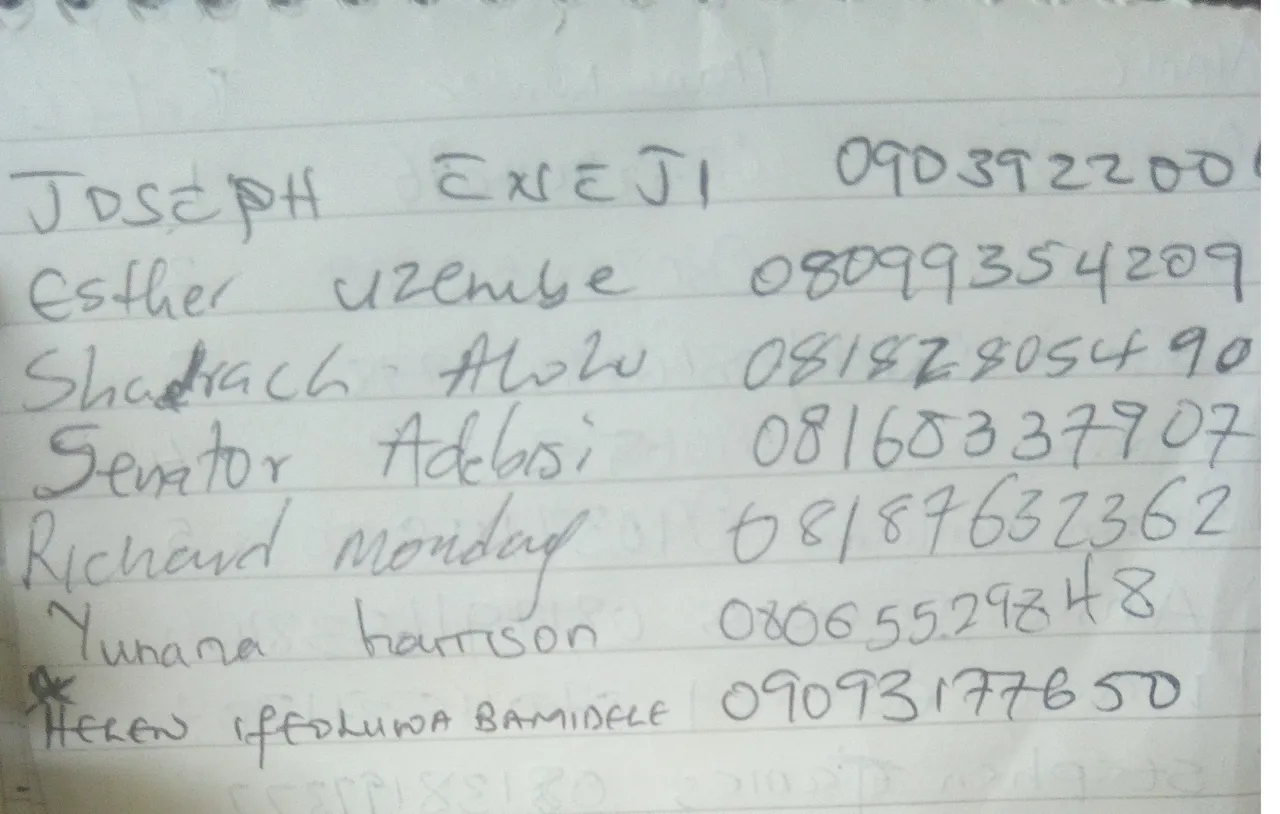 JOSEPH EXSEJI 090392200
Esther Uzembe 08099354209
Shadrach Alolu 08182805490
Senator Adebisi 08168337907
Richard Monday 08187632362
Yunana harrison 08065529848
HELEN IFEOLUWA BAMIDELE 09093177650